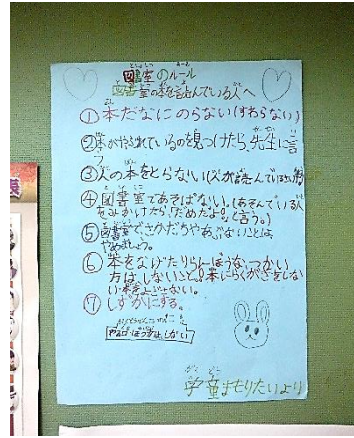 図書室のルール
図書室の本を読んでいる人へ
①本だなにのらない(すわらない)
②本がやぶれているのを見つけたら、先生に言
う
③人の本をとらない(人が読んでいる
④図書室であそばない。(あそんでいる人
をみかけたら「だめだよ。」と言う。)
⑤図書室で、さかだちやあぶないことは
やめましょう。
⑥本をなげたりらんぼうなつかい
方はしないこと。本にらくがきをしな
い
⑦しずかにする。
学童まもりたいより